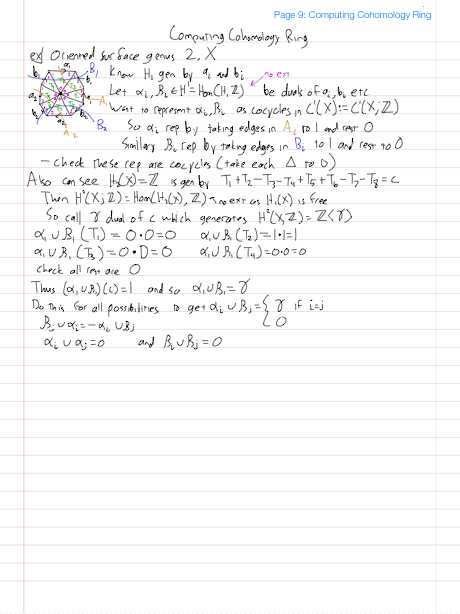 Page 9: Computing Cohomology Ring
Computing Cohomology Ring
ex) Oriented surface genus 2, X
Know H₁ gen by aᵢ and bᵢ
no ext
Let αᵢ, βᵢ ∈ H¹ = Hom(H₁, ℤ) be duals of aᵢ, bᵢ etc
Want to represent αᵢ, βᵢ as cocycles in C¹(X) := C¹(X; ℤ)
So αᵢ rep by taking edges in Aᵢ to 1 and rest 0
Similary βᵢ rep by taking edges in Bᵢ to 1 and rest to 0
- check these rep are cocycles (take each Δ to 0)
Also can see H₂(X) = ℤ is gen by T₁+T₂-T₃-T₄+T₅+T₆-T₇-T₈ = c
Then H²(X; ℤ) = Hom(H₂(X), ℤ) no ext as H₁(X) is free
So call γ dual of c which generates H²(X, ℤ) = ℤ⟨γ⟩
α₁ ∪ β₁ (T₁) = 0·0 = 0 α₁ ∪ β₁ (T₂) = 1·1 = 1
α₁ ∪ β₁ (T₃) = 0·0 = 0 α₁ ∪ β₁ (T₄) = 0·0 = 0
check all rest are 0
Thus (α₁ ∪ β₁)(c) = 1 and so α₁ ∪ β₁ = γ
Do this for all possibilities to get αᵢ ∪ βⱼ = { γ if i=j
0
βⱼ ∪ αᵢ = -αᵢ ∪ βⱼ
αᵢ ∪ αⱼ = 0 and βᵢ ∪ βⱼ = 0